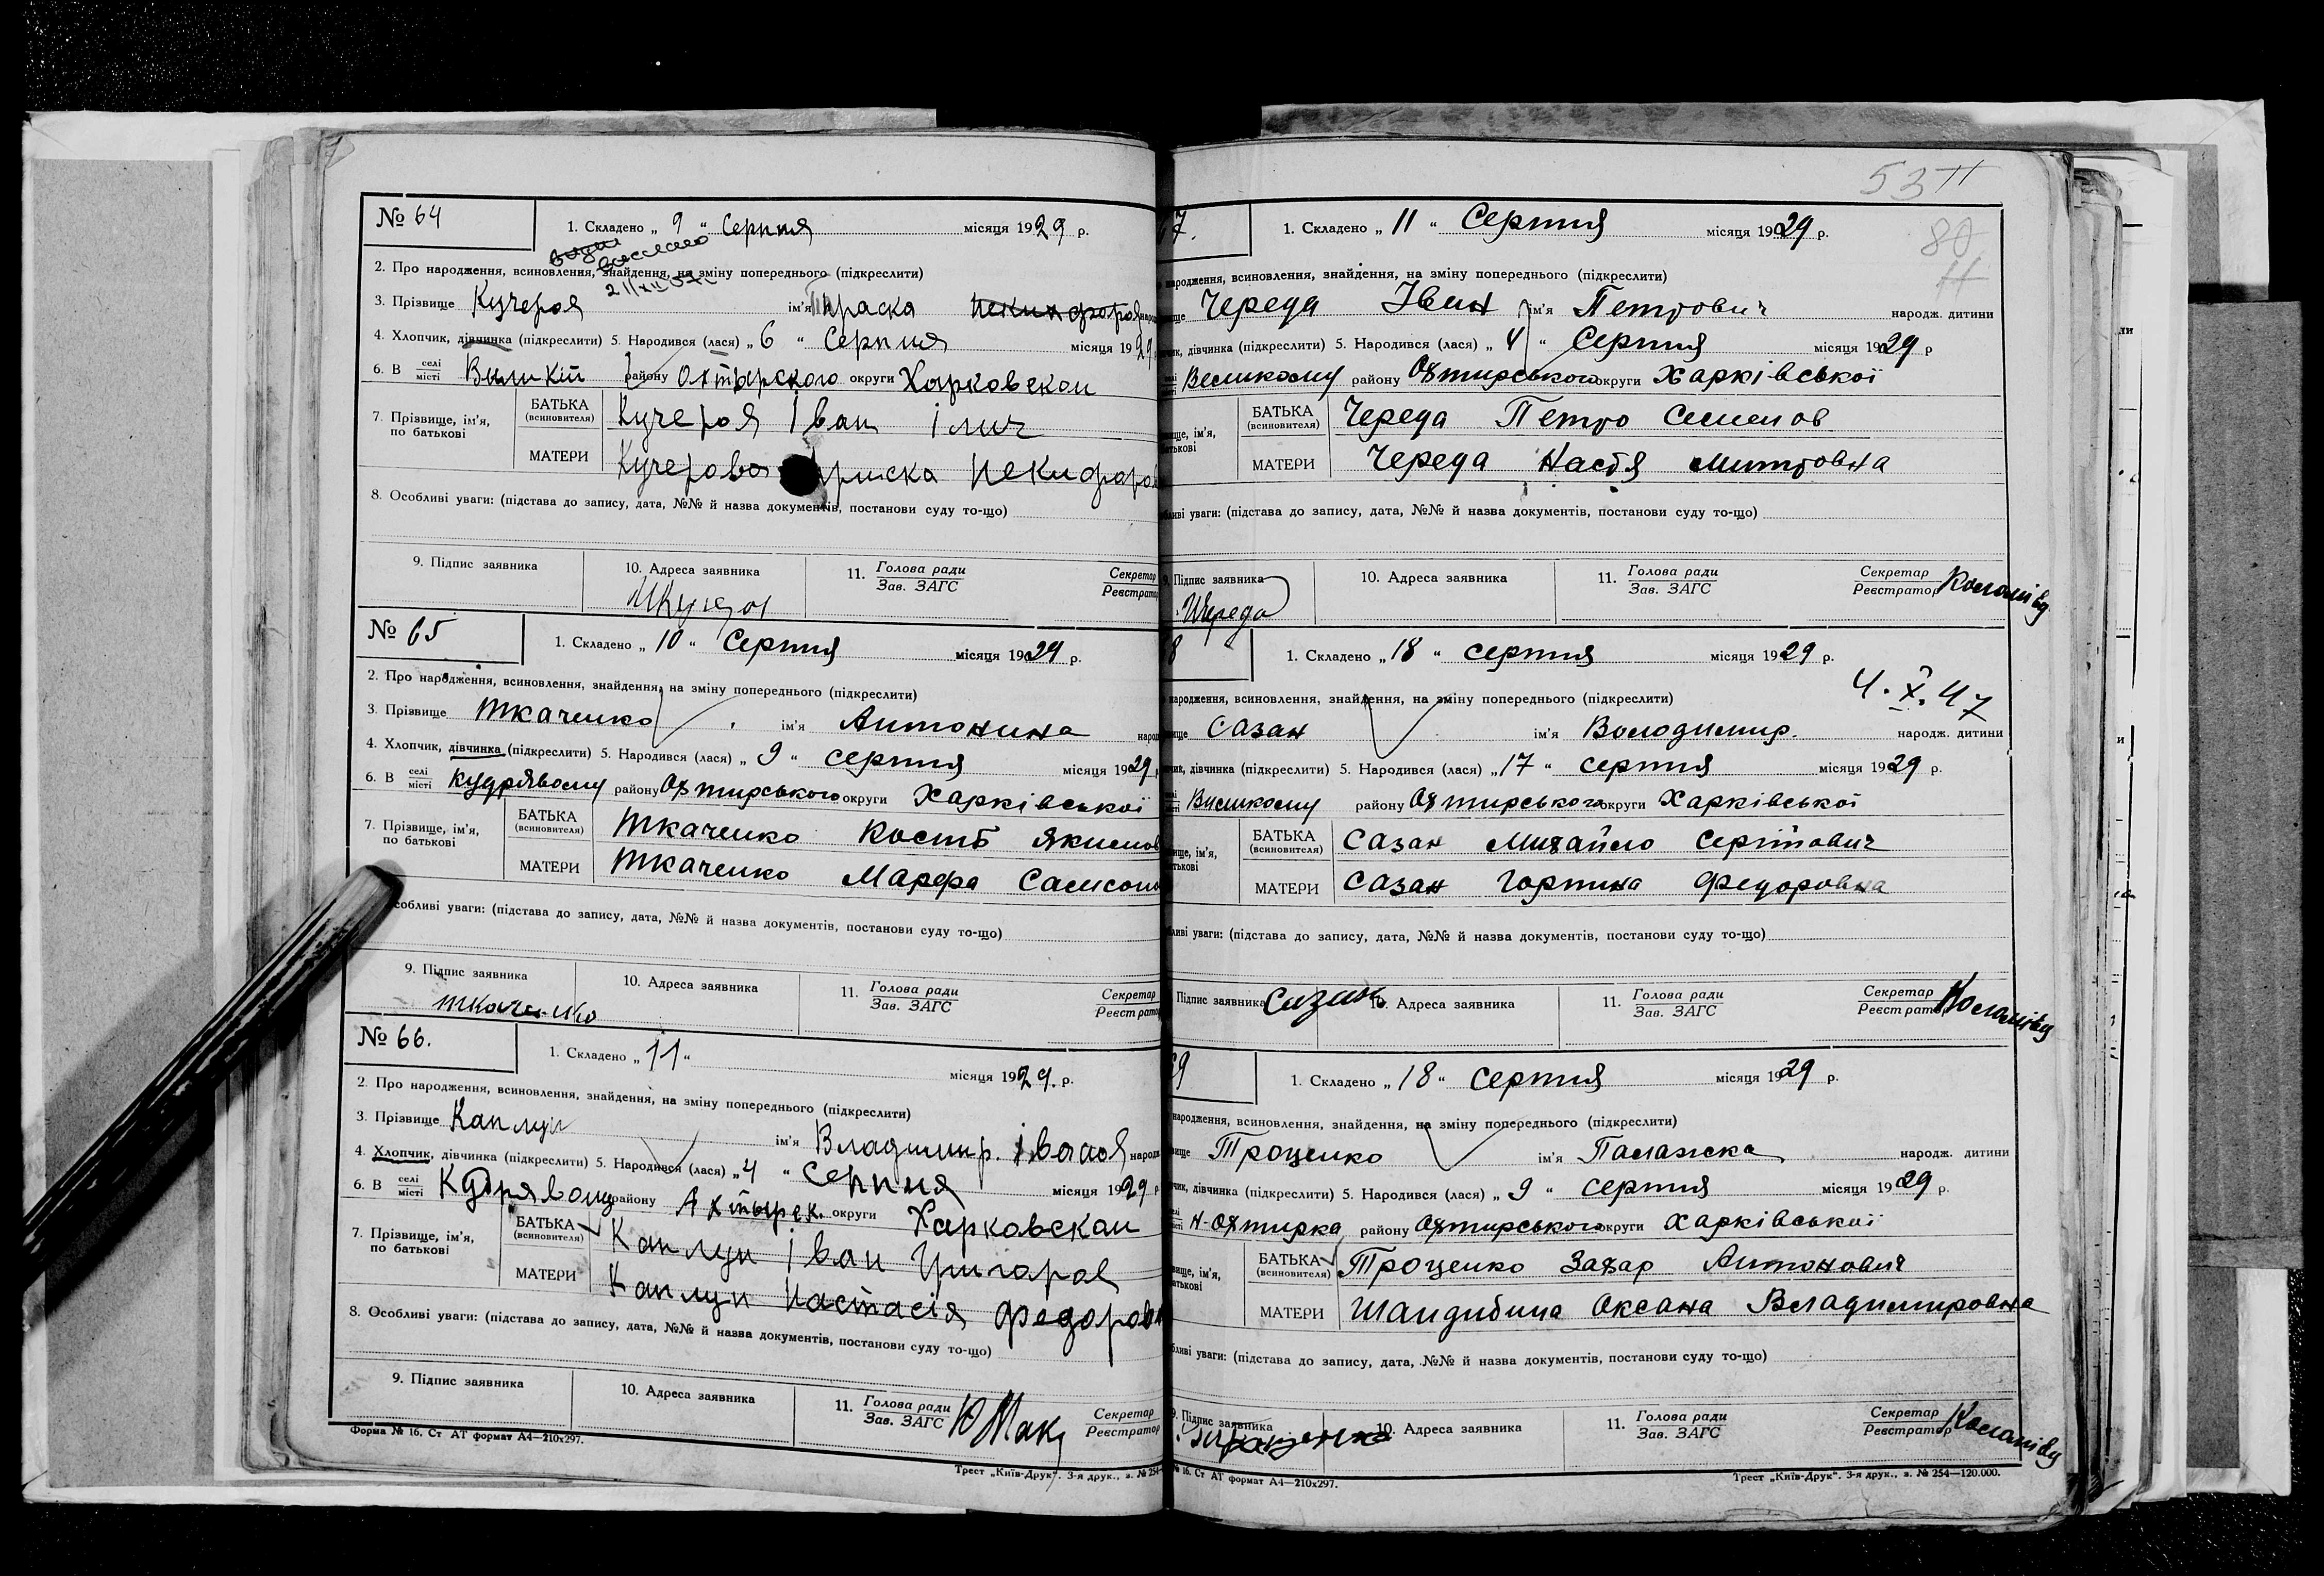 № 64
1. Складено „ 9 “ Серпня місяця 1929 р.
2. Про народження, всиновлення, знайдення, на зміну попереднього (підкреслити)
3. Прізвище Кучеря ім'я Параска
4. Хлопчик, дівчинка (підкреслити) 5. Народився (лася) „ 6 “ Серпня місяця 1929
6. В селі місті району Охтырского округи Харковскои
7. Прізвище, ім'я, по батькові
БАТЬКА (всиновителя) Кучеря Іван Ілич
МАТЕРИ Кучерова
8. Особливі уваги: (підстава до запису, дата, №№ й назва документів, постанови суду то-що)
9. Підпис заявника 10. Адреса заявника 11. Голова ради Зав. ЗАГС Секретар Реєстратор
№ 65
1. Складено „ 10 “ Серпня місяця 1929 р.
2. Про народження, всиновлення, знайдення, на зміну попереднього (підкреслити)
3. Прізвище Ткаченко ім'я Антонина народ
4. Хлопчик, дівчинка (підкреслити) 5. Народився (лася) „ 9 “ серпня місяця 1929
6. В селі місті Кудрявому району Охтирського округи Харківської
7. Прізвище, ім'я, по батькові
БАТЬКА (всиновителя) Ткаченко Кость Якимов
МАТЕРИ Ткаченко Марфа Самсоно
особливі уваги: (підстава до запису, дата, №№ й назва документів, постанови суду то-що)
9. Підпис заявника 10. Адреса заявника 11. Голова ради Зав. ЗАГС Секретар Реєстратор
Ткаченко
№ 66.
1. Складено „ 11 “ місяця 1929. р.
2. Про народження, всиновлення, знайдення, на зміну попереднього (підкреслити)
3. Прізвище Каплун ім'я Владимир.
4. Хлопчик, дівчинка (підкреслити) 5. Народився (лася) „ 4 “ Серпня місяця 1929
6. В селі місті Кудрявому району Ахтырск. округи Харковскои
7. Прізвище, ім'я, по батькові
БАТЬКА (всиновителя) Каплун Іван Григоров
МАТЕРИ Каплун Настасія Федоровн
8. Особливі уваги: (підстава до запису, дата, №№ й назва документів, постанови суду то-що)
9. Підпис заявника 10. Адреса заявника 11. Голова ради Зав. ЗАГС Секретар Реєстратор
Форма № 16. Ст АТ формат А4—210х297.
Трест „Київ-Друк“. 3-я друк., з. № 254
53
80
7.
1. Складено „ 11 “ Серпня місяця 1929 р.
народження, всиновлення, знайдення, на зміну попереднього (підкреслити)
Череда Іван ім'я Петрович народж. дитини
дівчинка (підкреслити) 5. Народився (лася) „ 4 “ Серпня місяця 1929 р
Великому району Охтирського округи Харківської
БАТЬКА (всиновителя) Череда Петро Семенов
МАТЕРИ Череда Настя Митровна
уваги: (підстава до запису, дата, №№ й назва документів, постанови суду то-що)
9. Підпис заявника 10. Адреса заявника 11. Голова ради Зав. ЗАГС Секретар Реєстратор
Череда
8
1. Складено „ 18 “ серпня місяця 1929 р.
4.X.47
народження, всиновлення, знайдення, на зміну попереднього (підкреслити)
Сазан ім'я Володимир. народж. дитини
дівчинка (підкреслити) 5. Народився (лася) „ 17 “ серпня місяця 1929 р.
Великому району Охтирського округи Харківської
БАТЬКА (всиновителя) Сазан Михайло Сергійович
МАТЕРИ Сазан Горпина Федоровна
уваги: (підстава до запису, дата, №№ й назва документів, постанови суду то-що)
Підпис заявника Сазан 10. Адреса заявника 11. Голова ради Зав. ЗАГС Секретар Реєстратор
9
1. Складено „ 18 “ серпня місяця 1929 р.
народження, всиновлення, знайдення, на зміну попереднього (підкреслити)
Троценко ім'я Палажка народж. дитини
дівчинка (підкреслити) 5. Народився (лася) „ 9 “ серпня місяця 1929 р.
Н-Охтирка району Охтирського округи Харківської
БАТЬКА (всиновителя) Троценко Захар Антонович
МАТЕРИ Шандибина Оксана Владимировна
уваги: (підстава до запису, дата, №№ й назва документів, постанови суду то-що)
9. Підпис заявника 10. Адреса заявника 11. Голова ради Зав. ЗАГС Секретар Реєстратор
№ 16. Ст АТ формат А4—210х297.
Трест „Київ-Друк“. 3-я друк., з. № 254—120.000.